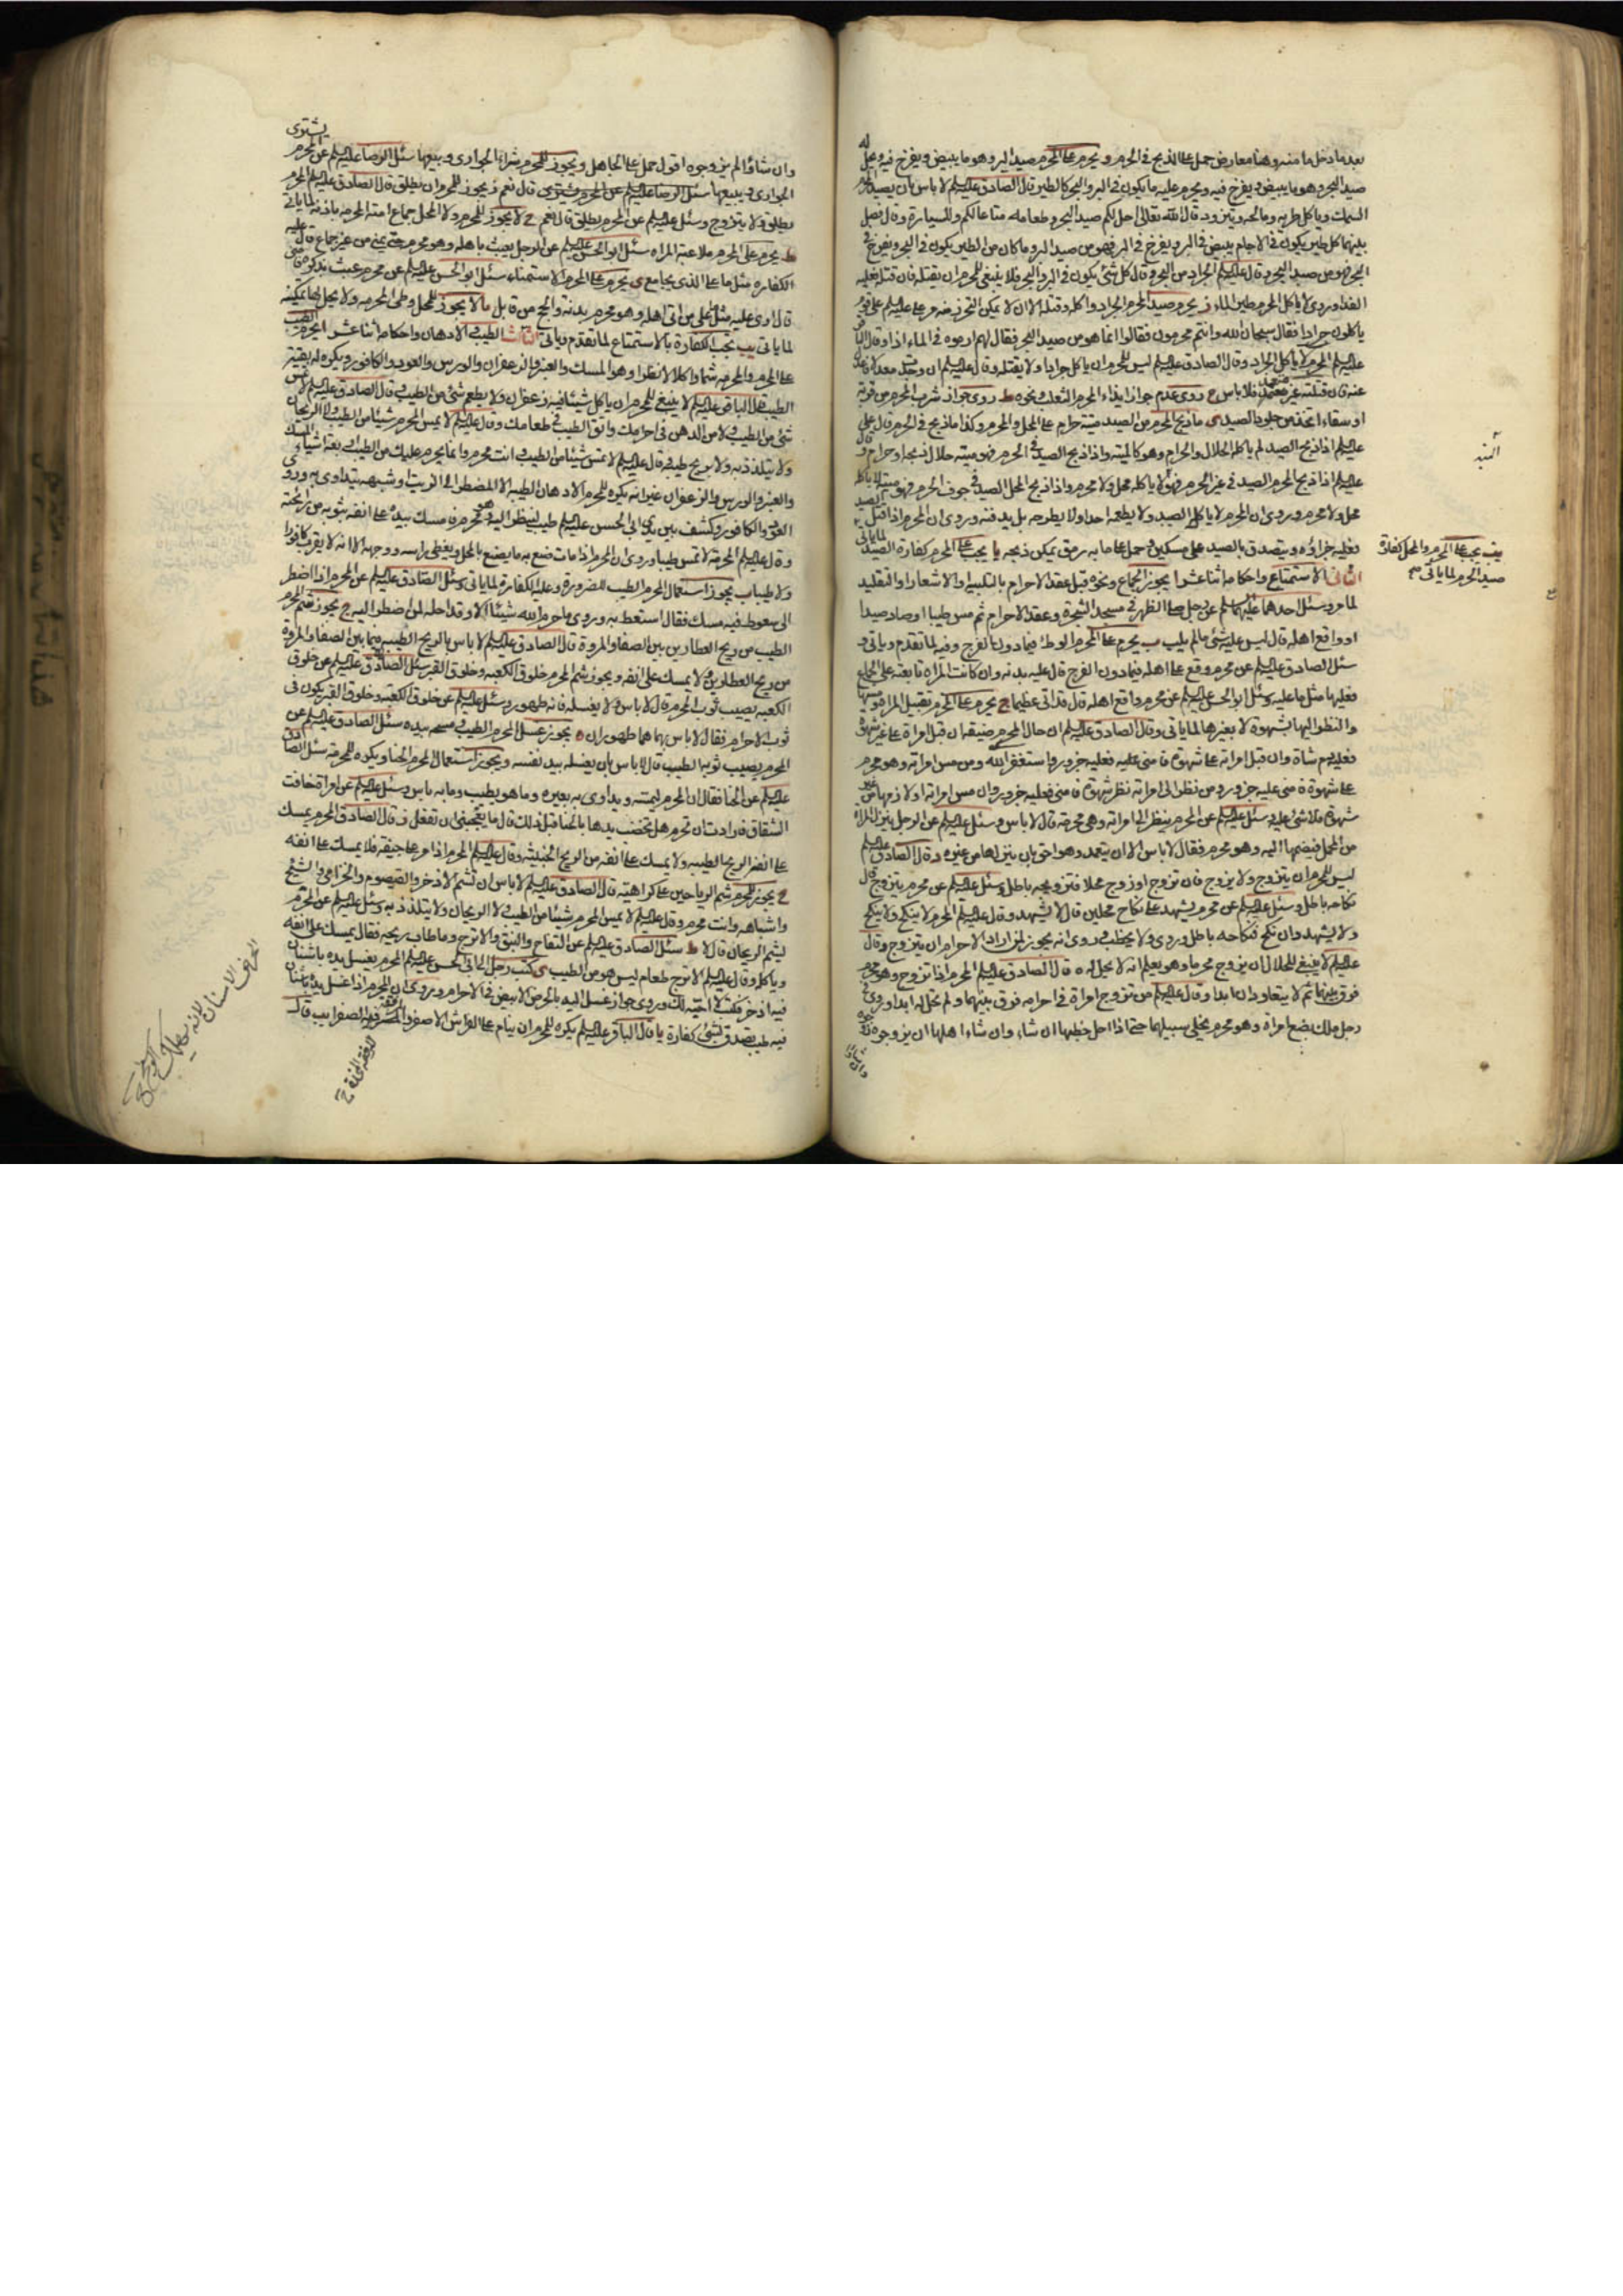 بعد ما دخل ما منه وهنا معارض حمل على الذبح في الحرم و يحرم على المحرم صيد البر وهو ما يبيض ويفرخ فيه ويحل له
صيد البحر وهو ما يبيض ويفرخ فيه ويحرم عليه ما يكون في البر والبحر كالطير قال الصادق عليه السلم لا باس بان يصيد المحرم
السمك وياكل طريه ومالحه ويتزود قال الله تعالى احل لكم صيد البحر وطعامه متاعا لكم وللسيارة وقال فصل
بينهما كل طير يكون في الاجام يبيض في البر ويفرخ في البر فهو من صيد البر وما كان من الطير يكون في البحر ويفرخ في
البحر فهو من صيد البحر وقال عليه السلم الجراد من البحر وقال كل شئ يكون في البر والبحر فلا ينبغي للمحرم ان يقتله فان قتله فعليه
الفدا وروى لا ياكل المحرم طير الماء ز يحرم صيد المحرم الجراد واكله وقتله الا ان لا يمكن التحرز منه مر علي عليه السلم على قوم
ياكلون جرادا فقال سبحان الله وانتم محرمون فقالوا انما هو من صيد البحر فقال لهم ارموه في الماء اذا وقال الباقر
عليه السلم المحرم لا ياكل الجراد وقال الصادق عليه السلم ليس للمحرم ان ياكل جرادا ولا يقتله وقال عليه السلم ان وجدت معدلا
عنه فان قتلته غير متعمد فلا باس ح روى عدم جواز ايذاء المحرم الثعلب ونحوه ط روى جواز شرب المحرم من قربة
او سقاء اتخذ من جلود الصيد ى ما ذبح المحرم من الصيد ميتة حرام على المحل والمحرم وكذا ما ذبح في الحرم قال علي
عليه السلم اذا ذبح المحرم الصيد لم ياكله الحلال والحرام وهو كالميتة واذا ذبح الصيد في الحرم فهو ميته حلال ذبحه او حرام وقال
عليه السلم اذا ذبح المحرم الصيد في غير الحرم فهو لا ياكله محل ولا محرم واذا ذبح المحل الصيد في جوف الحرم فهو ميتة لا ياكله
محل ولا محرم وروى ان المحرم لا ياكل الصيد ولا يطعمه احدا ولا يطرحه بل يدفنه وروى ان المحرم اذا قتل الصيد
فعليه جزاؤه ويتصدق بالصيد على مسكين وحمل على ما به رمق يمكن ذبحه يا يجب على المحرم كفارة الصيد لما ياتي
الثاني الاستمتاع واحكامه اثنا عشر ا يجوز الجماع ونحوه قبل عقد الاحرام بالتلبية او الاشعار او التقليد
لما مر وسئل احدهما عليهما السلم عن رجل صلى الظهر في مسجد الشجرة وعقد الاحرام ثم مس طيبا او صاد صيدا
او واقع اهله قال ليس عليه شئ ما لم يلب ب يحرم على المحرم الوطئ فيما دون الفرج وفيه لما تقدم وياتي و
سئل الصادق عليه السلم عن محرم وقع على اهله فيما دون الفرج قال عليه بدنه وان كانت المراة تابعته على الجماع
فعليها مثل ما عليه وسئل ابو الحسن عليه السلم عن محرم واقع اهله قال قد اتى عظيما ج يحرم على المحرم تقبيل المراة ومسها
والنظر اليها بشهوة لا بغيرها لما ياتي وقال الصادق عليه السلم ان حال المحرم ضيقه ان قبل امراة على غير شهوة
فعليه دم شاة وان قبل امراته على شهوة فامنى عليه فعليه جزور ويستغفر الله ومن مس امراته وهو محرم
على شهوة فامنى عليه جزور ومن نظر الى امراته نظر شهوة فامنى فعليه جزور وان مس امراته او لازمها من غير
شهوة فلا شئ عليه وسئل عليه السلم عن المحرم ينظر الى امراته وهي محرمة قال لا باس وسئل عليه السلم عن الرجل ينزل المراة
من المحمل فيضمها اليه وهو محرم فقال لا باس الا ان يتعمد وهو احق بان ينزلها من غيره د قال الصادق عليه السلم
ليس للمحرم ان يتزوج ولا يزوج فان تزوج او زوج محلا فتزويجه باطل وسئل عليه السلم عن محرم يتزوج قال
نكاحه باطل وسئل عليه السلم عن محرم يشهد على نكاح محلين قال لا يشهد وقال عليه السلم المحرم لا ينكح ولا ينكح
ولا يشهد وان نكح فنكاحه باطل وروى ولا يخطب وروى انه يجوز لمن اراد الاحرام ان يتزوج وقال
عليه السلم لا ينبغي للحلال ان يزوج محرما وهو يعلم انه لا يحل له ه قال الصادق عليه السلم المحرم اذا تزوج وهو محرم
فرق بينهما ثم لا يتعاودان ابدا وقال عليه السلم من تزوج امراة في احرامه فرق بينهما ولم تحل له ابدا وروى في
رجل ملك بضع امراة وهو محرم يخلي سبيلها حتى اذا احل خطبها ان شاء وان شاء اهلها ان يزوجوه
وان شاؤا
يجب على المحرم والمحل كفارة
صيد الحرم لما ياتي صح
وان شاؤا لم يزوجوه اقول حمل على الجاهل و يجوز للمحرم شراء الجوارى وبيعها سئل الرضا عليه السلم عن المحرم يشتري
الجوارى ويبيعها قال نعم ز يجوز للمحرم ان يطلق قال الصادق عليه السلم المحرم
يطلق ولا يتزوج وسئل عليه السلم عن المحرم يطلق قال نعم ح لا يجوز للمحرم ولا المحل جماع امته المحرمه باذنه لما ياتي
ط يحرم على المحرم ملاعبة المراه سئل ابو الحسن عليه السلم عن الرجل يعبث باهله وهو محرم حتى يمني من غير جماع قال عليه
الكفاره مثل ما على الذي يجامع ى يحرم على المحرم الاستمناء سئل ابو الحسن عليه السلم عن محرم عبث بذكره فامنى
قال ارى عليه مثل ما على من اتى اهله وهو محرم بدنة والحج من قابل يا لا يجوز للمحل وطئ المحرمه ولا يحل لها تمكينه
لما ياتي يب تجب الكفارة بالاستمتاع لما تقدم وياتي الثالث الطيب والادهان واحكامه اثنا عشر ا يحرم الطيب
على المحرم والمحرمه شما واكلا وهو المسك والعنبر والزعفران والورس والعود والكافور ويكره له بقية
الطيب قال الباقر عليه السلم لا ينبغي للمحرم ان ياكل شيئا فيه زعفران ولا يطعم شئ من الطيب وقال الصادق عليه السلم لا تمس
شئ من الطيب ولا من الدهن في احرامك واتق الطيب في طعامك وقال عليه السلم لا يمس المحرم شيئا من الطيب ولا الريحان
ولا يتلذذ به ولا بريح طيب وقال عليه السلم لا تمس شيئا من الطيب وانت محرم وانما يحرم عليك من الطيب اربعة اشيا المسك
والعنبر والورس والزعفران غير انه يكره للمحرم الادهان الطيبه الا المضطر الى الزيت او شبهه يتداوى به وروى
العود والكافور وكشف بين يدي ابي الحسن عليه السلم طيب لينظر اليه وهو محرم فامسك بيده على انفه بثوبه من رائحته
وقال عليه السلم المحرمة لا تمس طيبا وروى ان المحرم اذا مات صنع به ما يصنع بالمحل ويغطى راسه ووجهه الا انه لا يقرب كافورا
ولا طيبا ب يجوز استعمال المحرم الطيب للضرورة وعليه الكفارة لما ياتي وسئل الصادق عليه السلم عن المحرم اذا اضطر
الى سعوط فيه مسك فقال استعط به وروى ما حرم الله شيئا الا وقد احله لمن اضطر اليه ج يجوز شم المحرم
الطيب من ريح العطارين بين الصفا والمروة قال الصادق عليه السلم لا باس بالريح الطيبه فيما بين الصفا والمروة
من ريح العطارين ولا يمسك على انفه د يجوز شم المحرم خلوق الكعبه وخلوق القبر سئل الصادق عليه السلم عن خلوق
الكعبه يصيب ثوب المحرم قال لا باس ولا يغسله فانه طهور وسئل عليه السلم عن خلوق الكعبه وخلوق القبر يكون في
ثوب الاحرام فقال لا باس بهما هما طهوران ه يجوز غسل المحرم الطيب ومسحه بيده سئل الصادق عليه السلم عن
المحرم يصيب ثوبه الطيب قال لا باس بان يغسله بيد نفسه و يجوز استعمال المحرم الحنا ويكره للمحرمه سئل الصادق
عليه السلم عن الحنا فقال ان المحرم ليمسه ويداوى به بعيره وما هو بطيب وما به باس وسئل عليه السلم عن امراة خافت
الشقاق فارادت ان تحرم هل تخضب يدها بالحنا قبل ذلك قال ما يعجبني ان تفعل ز قال الصادق المحرم يمسك
على انفه من الريح الطيبه ولا يمسك على انفه من الريح الخبيثه وقال عليه السلم المحرم اذا مر على جيفة فلا يمسك على انفه
ح يجوز للمحرم شم الرياحين على كراهيته قال الصادق عليه السلم لا باس ان تشم الاذخر والقيصوم والخزامى والشيح
واشباهه وانت محرم وقال عليه السلم لا يمس المحرم شيئا من الطيب ولا الريحان ولا يتلذذ به وسئل عليه السلم عن المحرم
يشم الريحان قال لا ط سئل الصادق عليه السلم عن التفاح والنبق والاترج وما طاب ريحه فقال يمسك على انفه
وياكله وقال عليه السلم الاترج طعام ليس هو من الطيب ى كتب رجل الى ابي الحسن عليه السلم المحرم يغسل يده باشنان
فيه اذخر فكتب لا احبه لك وروى جواز غسل اليد بالحرض الابيض في الاحرام وروى ان المحرم اذا غسل يده باشنان
فيه طيب تصدق بشئ كفارة يا قال الباقر عليه السلم يكره للمحرم ان ينام على الفراش الاصفر والمرفقة الصفرا يب قال
المرفقه المخدة ق